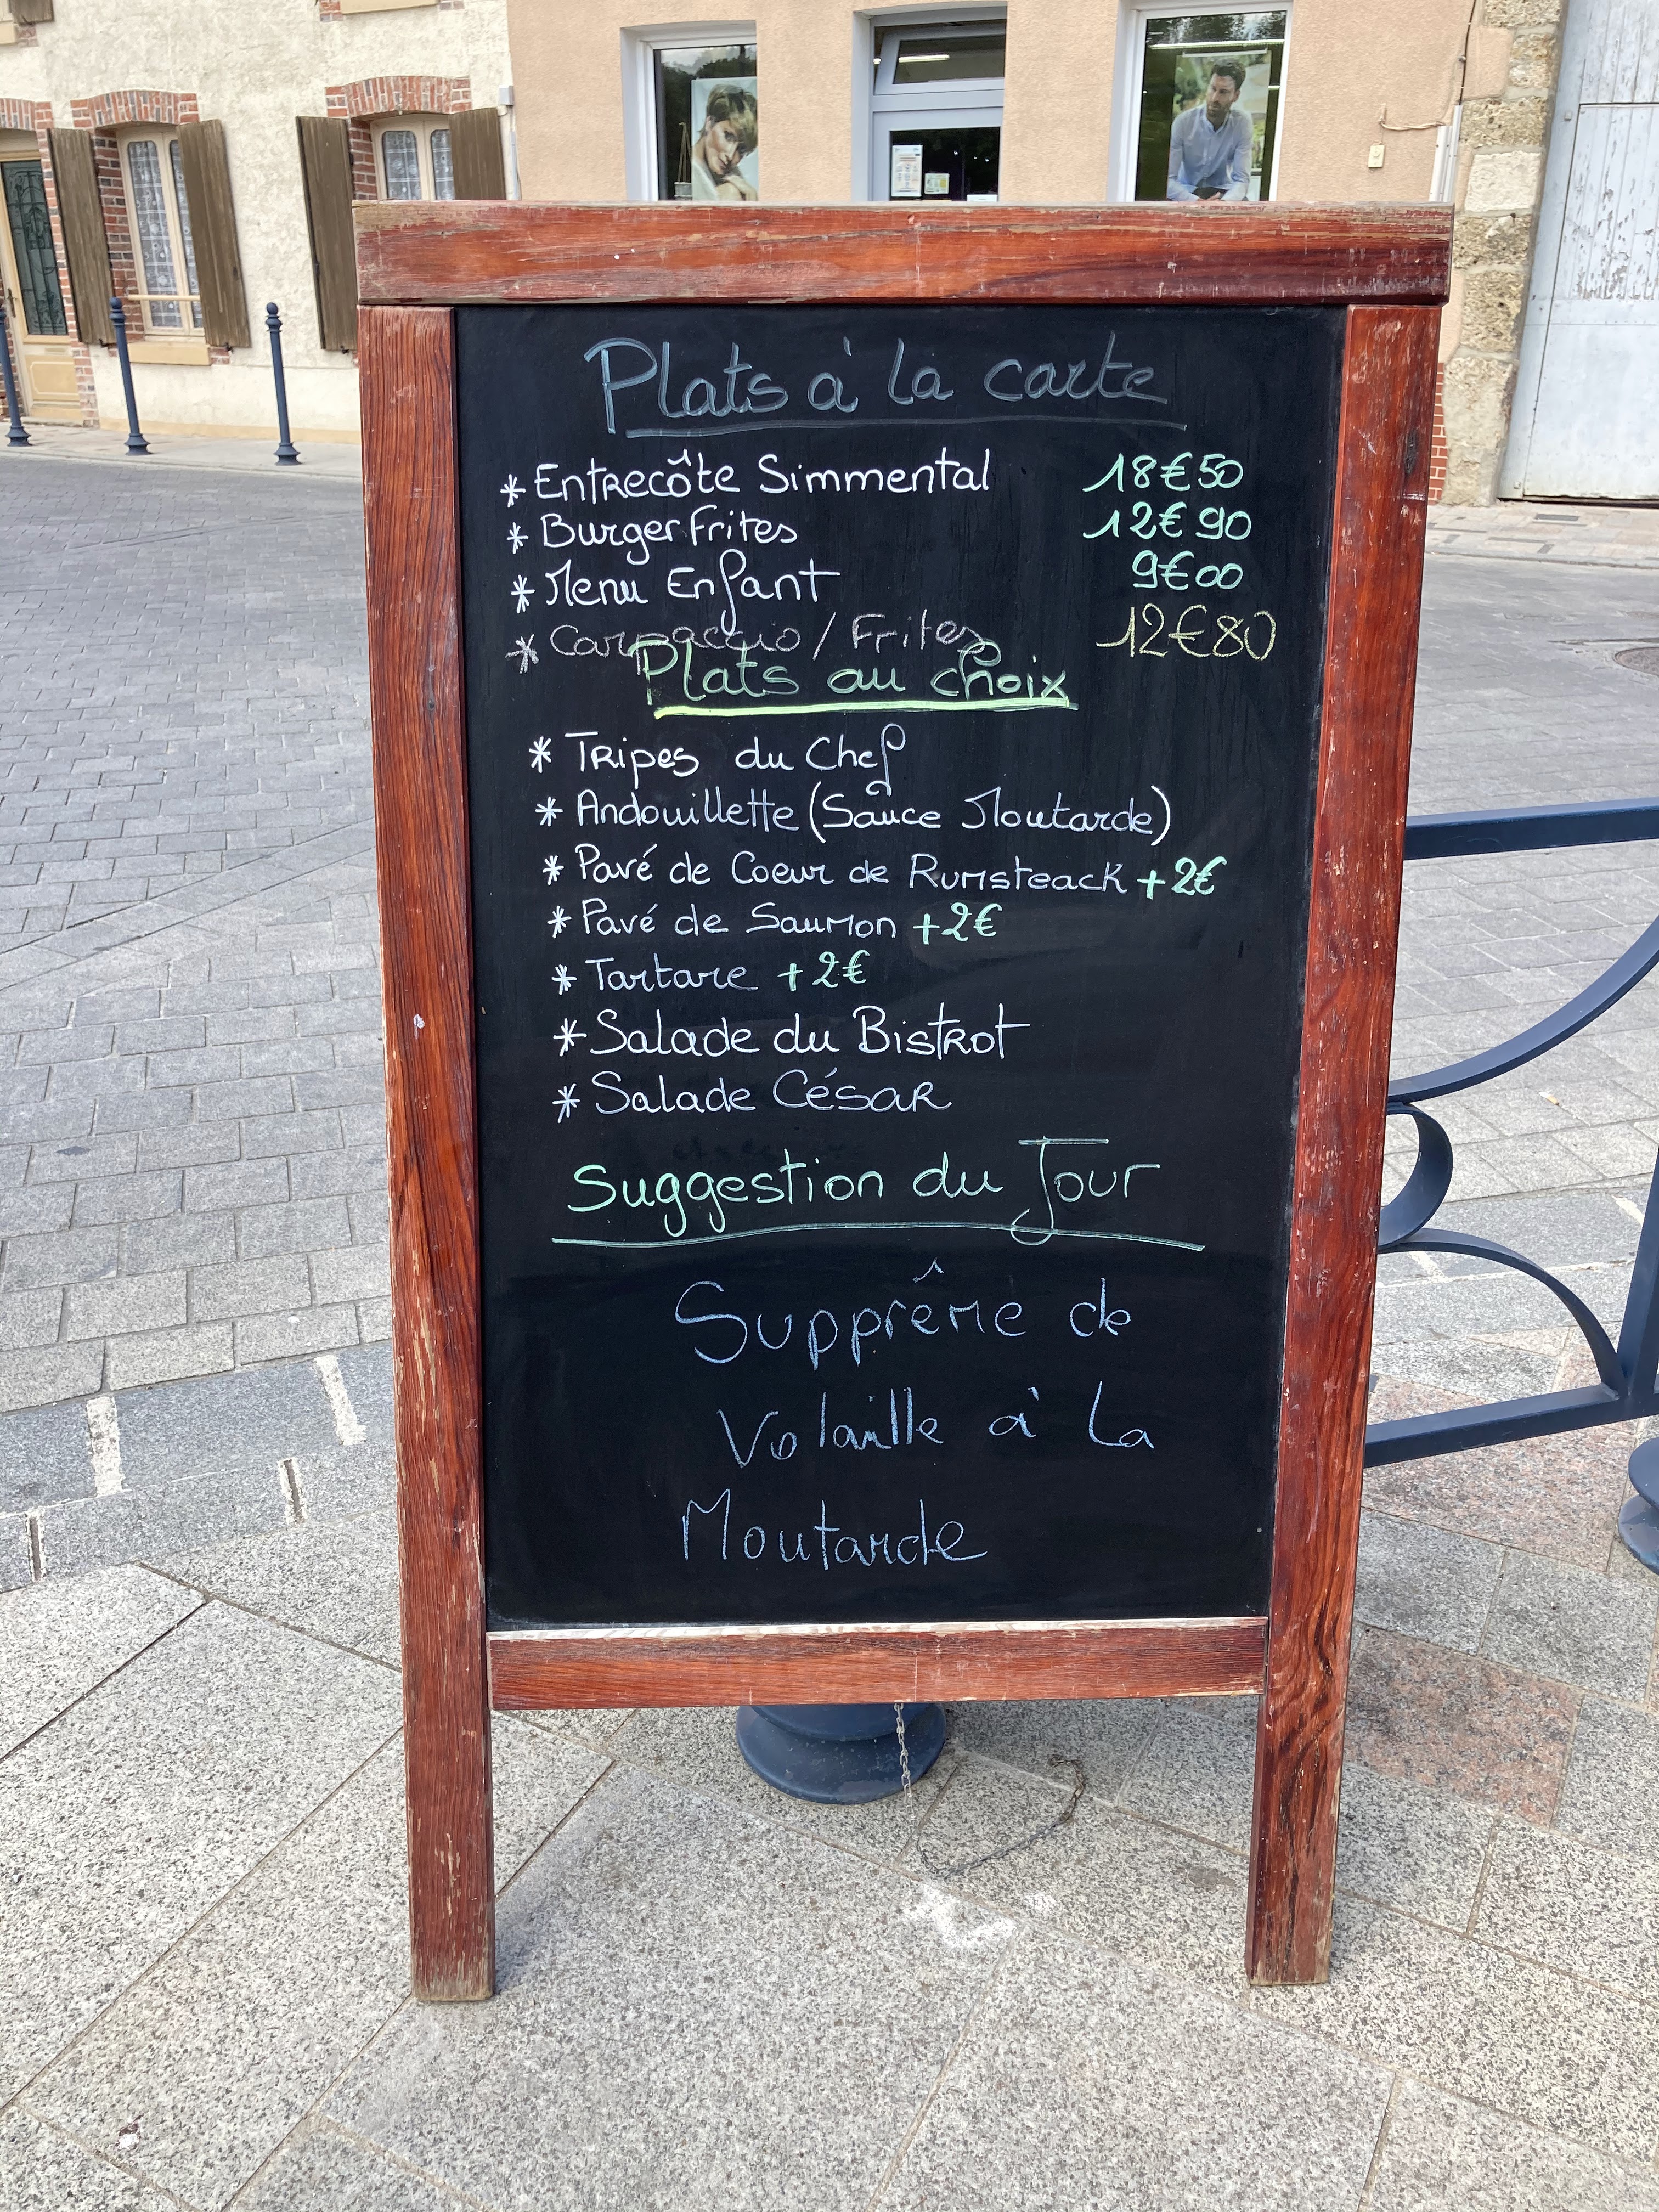 Plats à la carte
* Entrecôte Simmental 18€50
* Burger Frites 12€90
* Menu Enfant 9€00
* Carpaccio / Frites 12€80
Plats au choix
* Tripes du Chef
* Andouillette (Sauce Moutarde)
* Pavé de Coeur de Rumsteack +2€
* Pavé de Saumon +2€
* Tartare +2€
* Salade du Bistrot
* Salade César
Suggestion du Jour
Supprême de
Volaille à La
Moutarde